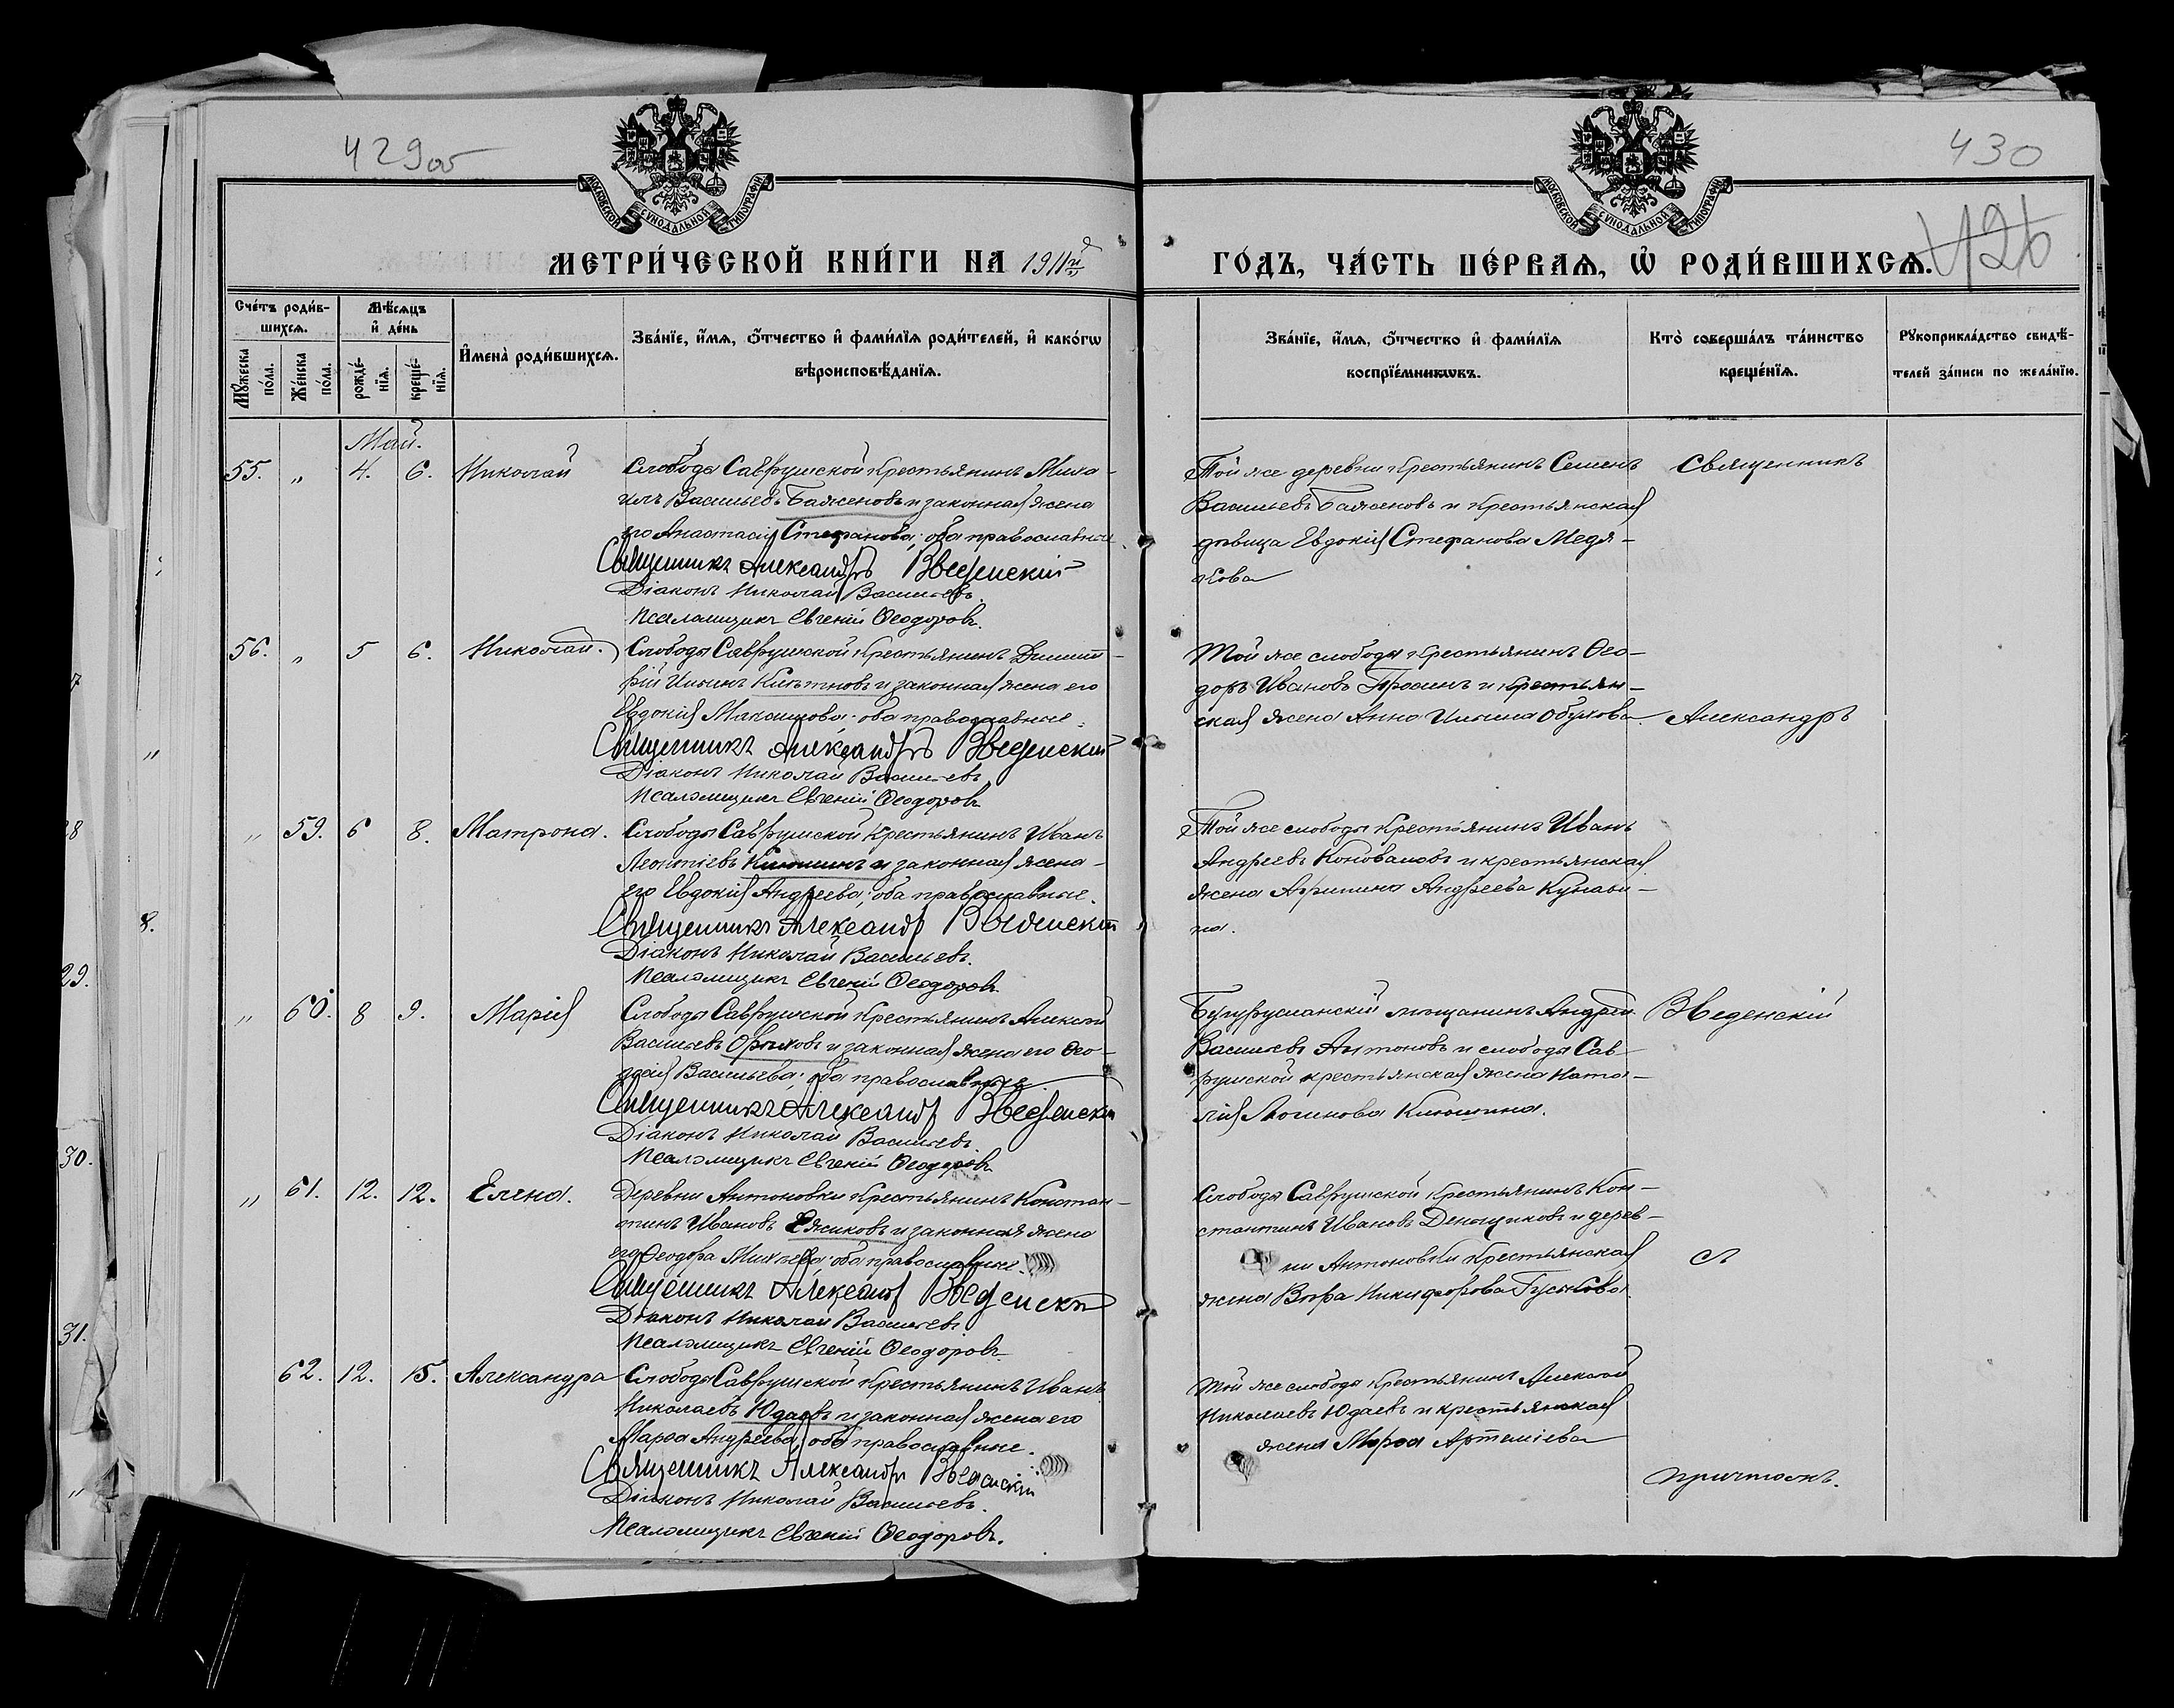 429об
430
426
МОСКОВСКОЙ СѴНОДАЛЬНОЙ ТИПОГРАФІИ
МОСКОВСКОЙ СѴНОДАЛЬНОЙ ТИПОГРАФІИ
МЕТРИ́ЧЕСКОЙ КНИ́ГИ НА 1911й
ГО́ДЪ, ЧА́СТЬ ПЕ́РВАѦ, Ѡ҆ РОДИ́ВШИХСѦ.
Сче́тъ роди́в-
шихсѧ.
Мꙋ́жеска по́ла.
Же́нска по́ла.
Мѣ́сѧцъ
и҆ де́нь
рожде́-
нїѧ.
креще́-
нїѧ.
И҆мена̀ роди́вшихсѧ.
Зва́нїе, и҆́мѧ, ѻ҆́тчество и҆ фами́лїѧ роди́телей, и҆ како́гѡ
вѣроисповѣ́данїѧ.
Зва́нїе, и҆́мѧ, ѻ҆́тчество и҆ фами́лїѧ
воспрїе́мникѡвъ.
Кто̀ соверша́лъ та́инство
креще́нїѧ.
Рꙋкоприкла́дство свидѣ́-
телей за́писи по жела́нїю.
Май.
55. " 4. 6. Николай
Слободы Саврушской крестьянинъ Миха-
илъ Васильевъ Баженовъ и законная жена
его Анастасія Стефанова; оба православные.
Священникъ Александръ Введенскій
Діаконъ Николай Васильевъ.
Псаломщикъ Евгеній Ѳеодоровъ.
Той же деревни крестьянинъ Семенъ
Васильевъ Баженовъ и крестьянская
дѣвица Евдокія Стефанова Медя-
кова
Священникъ
56. " 5 6. Николай.
Слободы Саврушской крестьянинъ Димит-
рій Ильинъ Клѣтновъ и законная жена его
Евдокія Максимова; оба православные.
Священникъ Александръ Введенскій
Діаконъ Николай Васильевъ
Псаломщикъ Евгеній Ѳеодоровъ
Той же слободы крестьянинъ Ѳео-
доръ Ивановъ Просинъ и крестьян-
ская жена Анна Ильина Обухова.
Александръ
" 59. 6 8. Матрона.
Слободы Саврушской крестьянинъ Иванъ
Леонтіевъ Клюшинъ и законная жена
его Евдокія Андреева; оба православные.
Священникъ Александр Введенскій
Діаконъ Николай Васильевъ.
Псаломщикъ Евгеній Ѳеодоровъ
Той же слободы крестьянинъ Иванъ
Андреевъ Коноваловъ и крестьянская
жена Агрипина Андреева Кунави-
на.
" 60. 8 9. Марія
Слободы Саврушской крестьянинъ Алексій
Васильевъ Орѣховъ и законная жена его Ѳео-
досія Васильева; оба православные.
Священникъ Александр Введенскій
Діаконъ Николай Васильевъ
Псаломщикъ Евгеній Ѳеодоровъ
Бугурусланскій мѣщанинъ Андрей
Васильевъ Антоновъ и слободы Сав-
рушской крестьянская жена Ната-
лія Логинова Клюшина.
Введенскій
" 61. 12. 12. Елена.
Деревни Антоновки крестьянинъ Констан-
тинъ Ивановъ Ежиковъ и законная жена
его Ѳеодора оба православные.
Священникъ Александр Введенскій
Діаконъ Николай Васильевъ
Псаломщикъ Евгеній Ѳеодоровъ
Слободы Саврушской крестьянинъ Кон-
стантинъ Ивановъ Денщиковъ и дерев-
ни Антоновки крестьянская
жена Вѣра Никифорова Гуськова.
съ
62. 12. 15. Александра
Слободы Саврушской крестьянинъ Иванъ
Николаевъ Юдаевъ и законная жена его
Марѳа Андреева; оба православные.
Священникъ Александръ Введенскій
Діаконъ Николай Васильевъ.
Псаломщикъ Евгеній Ѳеодоровъ.
Той же слободы крестьянинъ Алексій
Николаевъ Юдаевъ и крестьянская
жена Марѳа Артеміева
причтомъ.
8.
29.
30.
31.